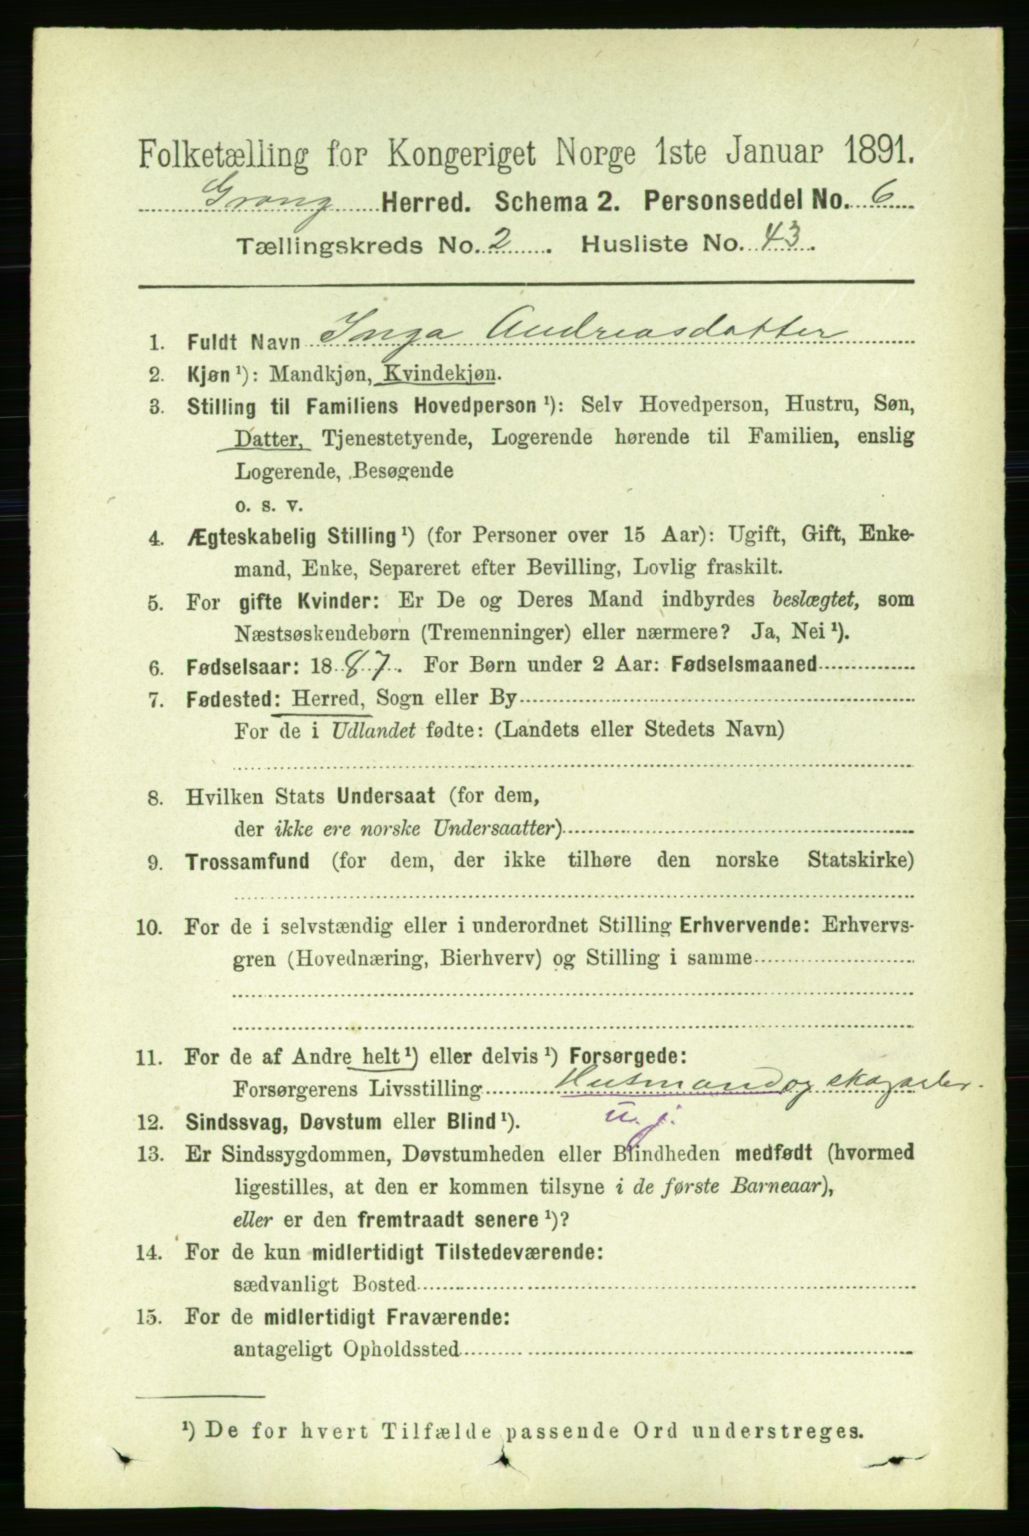 Folketælling for Kongeriget Norge 1ste Januar 1891.
Grong Herred. Schema 2. Personseddel No. 6
Tællingskreds No. 2. Husliste No. 43.
1. Fuldt Navn Inga Andreasdatter
2. Kjøn ¹): Mandkjøn, Kvindekjøn.
3. Stilling til Familiens Hovedperson ¹): Selv Hovedperson, Hustru, Søn,
Datter, Tjenestetyende, Logerende hørende til Familien, enslig
Logerende, Besøgende
o. s. v.
4. Ægteskabelig Stilling ¹) (for Personer over 15 Aar): Ugift, Gift, Enke-
mand, Enke, Separeret efter Bevilling, Lovlig fraskilt.
5. For gifte Kvinder: Er De og Deres Mand indbyrdes beslægtet, som
Næstsøskendebørn (Tremenninger) eller nærmere? Ja, Nei ¹).
6. Fødselsaar: 1887. For Børn under 2 Aar: Fødselsmaaned
7. Fødested: Herred, Sogn eller By
For de i Udlandet fødte: (Landets eller Stedets Navn)
8. Hvilken Stats Undersaat (for dem,
der ikke ere norske Undersaatter)
9. Trossamfund (for dem, der ikke tilhøre den norske Statskirke)
10. For de i selvstændig eller i underordnet Stilling Erhvervende: Erhvervs-
gren (Hovednæring, Bierhverv) og Stilling i samme
11. For de af Andre helt ¹) eller delvis ¹) Forsørgede:
Forsørgerens Livsstilling Husmand og
12. Sindssvag, Døvstum eller Blind ¹). u. j.
13. Er Sindssygdommen, Døvstumheden eller Blindheden medfødt (hvormed
ligestilles, at den er kommen tilsyne i de første Barneaar),
eller er den fremtraadt senere ¹)?
14. For de kun midlertidigt Tilstedeværende:
sædvanligt Bosted
15. For de midlertidigt Fraværende:
antageligt Opholdssted
¹) De for hvert Tilfælde passende Ord understreges.